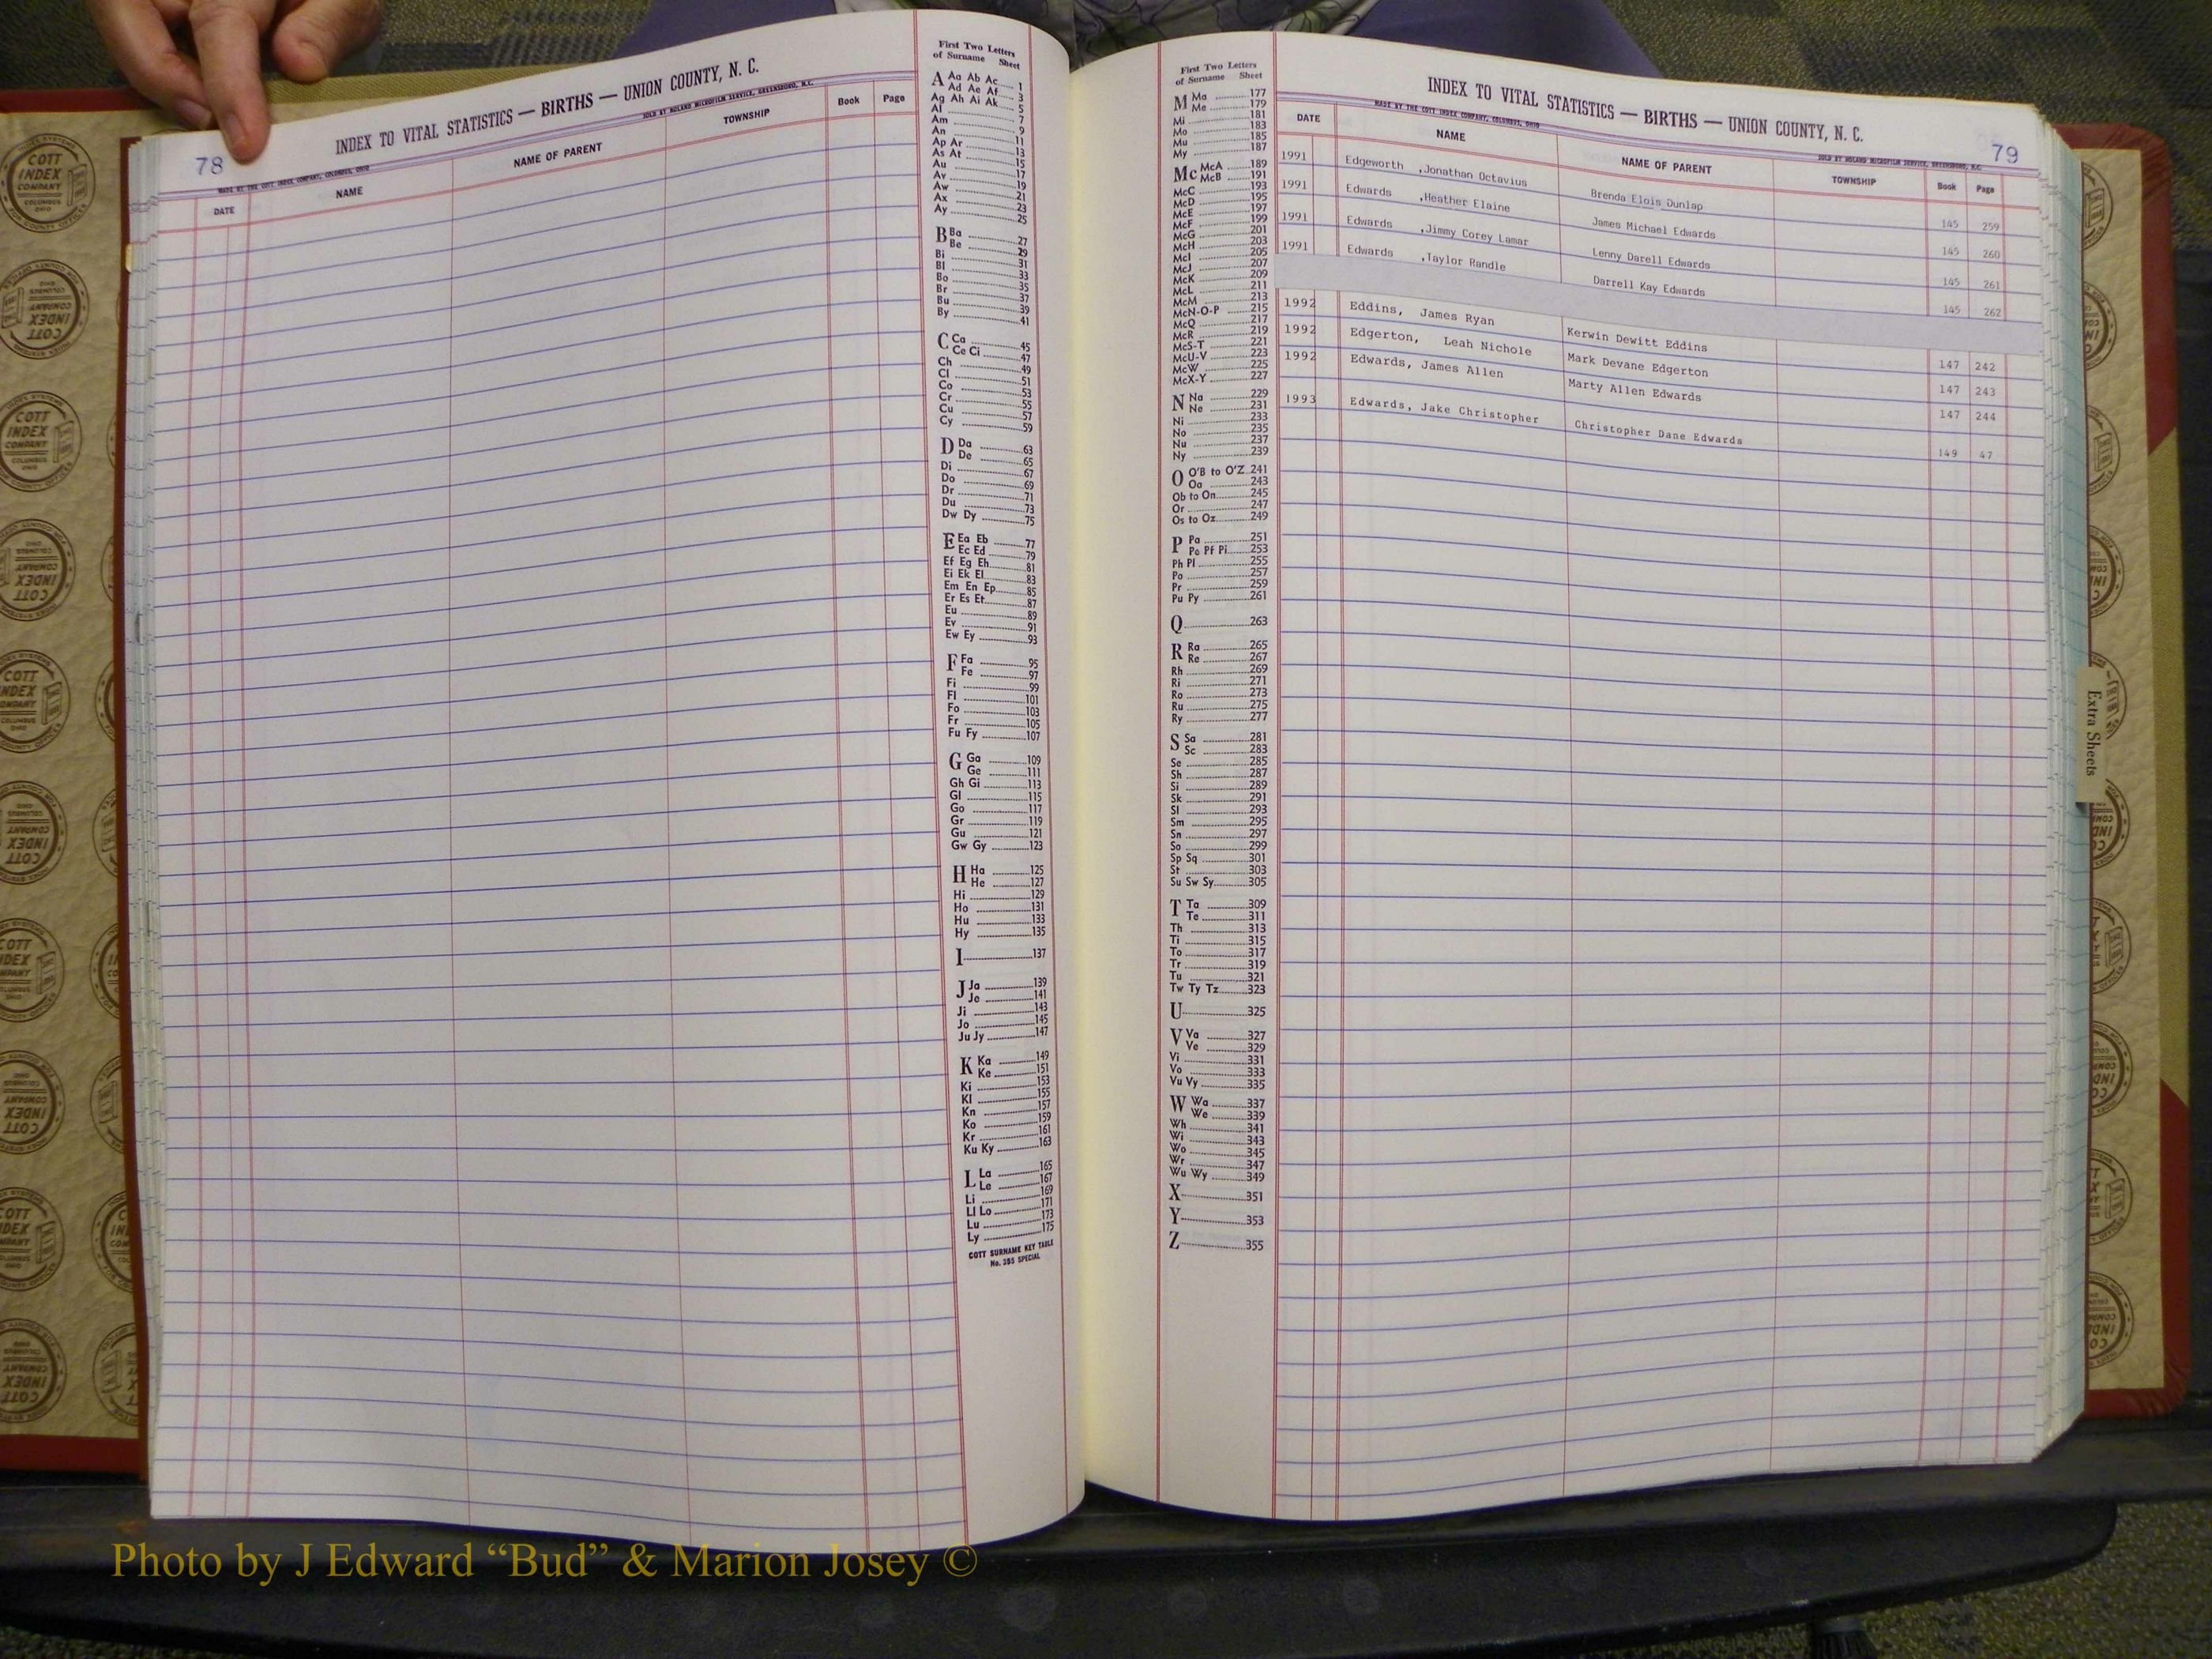 78
INDEX TO VITAL STATISTICS — BIRTHS — UNION COUNTY, N. C.
MADE BY THE COTT INDEX COMPANY, COLUMBUS, OHIO
SOLD BY ROLAND MICROFILM SERVICE, GREENSBORO, N.C.
DATE NAME NAME OF PARENT TOWNSHIP Book Page
First Two Letters
of Surname Sheet
A Aa Ab Ac 1
Ad Ae Af 3
Ag Ah Ai Ak 5
Al 7
Am 9
An 11
Ap Ar 13
As At 15
Au 17
Av 19
Aw 21
Ax 23
Ay 25
B Ba 27
Be 29
Bi 31
Bl 33
Bo 35
Br 37
Bu 39
By 41
C Ca 45
Ce Ci 47
Ch 49
Cl 51
Co 53
Cr 55
Cu 57
Cy 59
D Da 63
De 65
Di 67
Do 69
Dr 71
Du 73
Dw Dy 75
E Ea Eb 77
Ec Ed 79
Ef Eg Eh 81
Ei Ek El 83
Em En Ep 85
Er Es Et 87
Eu 89
Ev 91
Ew Ey 93
F Fa 95
Fe 97
Fi 99
Fl 101
Fo 103
Fr 105
Fu Fy 107
G Ga 109
Ge 111
Gh Gi 113
Gl 115
Go 117
Gr 119
Gu 121
Gw Gy 123
H Ha 125
He 127
Hi 129
Ho 131
Hu 133
Hy 135
I 137
J Ja 139
Je 141
Ji 143
Jo 145
Ju Jy 147
K Ka 149
Ke 151
Ki 153
Kl 155
Kn 157
Ko 159
Kr 161
Ku Ky 163
L La 165
Le 167
Li 169
Ll Lo 171
Lu 173
Ly 175
COTT SURNAME KEY TABLE
No. 355 SPECIAL
First Two Letters
of Surname Sheet
M Ma 177
Me 179
Mi 181
Mo 183
Mu 185
My 187
Mc McA 189
McB 191
McC 193
McD 195
McE 197
McF 199
McG 201
McH 203
McI 205
McJ 207
McK 209
McL 211
McM 213
McN-O-P 215
McQ 217
McR 219
McS-T 221
McU-V 223
McW 225
McX-Y 227
N Na 229
Ne 231
Ni 233
No 235
Nu 237
Ny 239
O O'B to O'Z 241
Oa 243
Ob to On 245
Or 247
Os to Oz 249
P Pa 251
Pe Pf Pi 253
Ph Pl 255
Po 257
Pr 259
Pu Py 261
Q 263
R Ra 265
Re 267
Rh 269
Ri 271
Ro 273
Ru 275
Ry 277
S Sa 281
Sc 283
Se 285
Sh 287
Si 289
Sk 291
Sl 293
Sm 295
Sn 297
So 299
Sp Sq 301
St 303
Su Sw Sy 305
T Ta 309
Te 311
Th 313
Ti 315
To 317
Tr 319
Tu 321
Tw Ty Tz 323
U 325
V Va 327
Ve 329
Vi 331
Vo 333
Vu Vy 335
W Wa 337
We 339
Wh 341
Wi 343
Wo 345
Wr 347
Wu Wy 349
X 351
Y 353
Z 355
INDEX TO VITAL STATISTICS — BIRTHS — UNION COUNTY, N. C.
79
MADE BY THE COTT INDEX COMPANY, COLUMBUS, OHIO
SOLD BY ROLAND MICROFILM SERVICE, GREENSBORO, N.C.
DATE NAME NAME OF PARENT TOWNSHIP Book Page
1991 Edgeworth ,Jonathan Octavius Brenda Elois Dunlap 145 259
1991 Edwards ,Heather Elaine James Michael Edwards 145 260
1991 Edwards ,Jimmy Corey Lamar Lenny Darell Edwards 145 261
1991 Edwards ,Taylor Randle Darrell Kay Edwards 145 262
1992 Eddins, James Ryan Kerwin Dewitt Eddins 147 242
1992 Edgerton, Leah Nichole Mark Devane Edgerton 147 243
1992 Edwards, James Allen Marty Allen Edwards 147 244
1993 Edwards, Jake Christopher Christopher Dane Edwards 149 47
Extra Sheets
COTT
INDEX
COMPANY
COLUMBUS
OHIO
Photo by J Edward “Bud” & Marion Josey ©